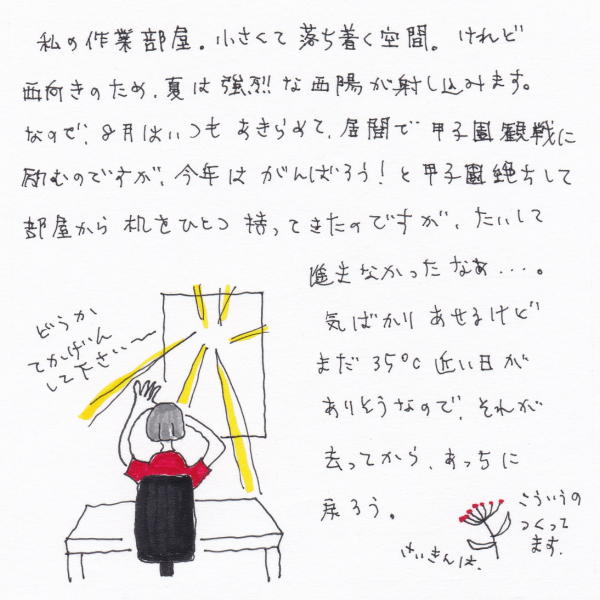 私の作業部屋。小さくて落ち着く空間。けれど
西向きのため、夏は強烈な西陽が射し込みます。
なので、8月はいつもあきらめて、居間で甲子園観戦に
励むのですが、今年はがんばろう!と甲子園絶ちして
部屋から机をひとつ持ってきたのですが、たいして
進まなかったなぁ・・・・。
気ばかりあせるけど
まだ35℃近い日が
ありそうなので、それが
去ってから、あっちに
戻ろう。
どうか
てかげん
して下さい〜
さいきんは、
こういうの
つくって
ます。